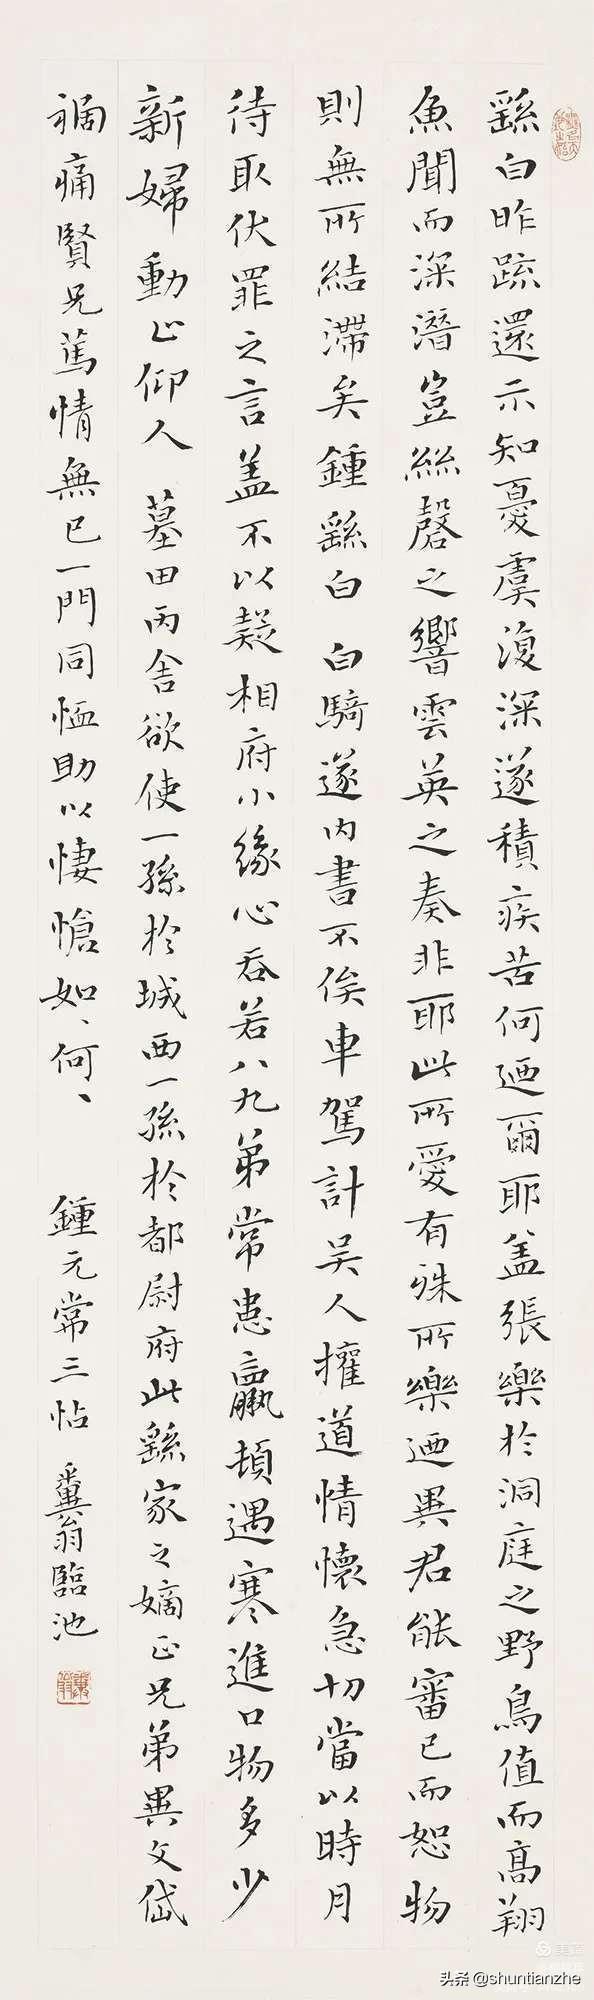 繇白昨疏還示知憂虞復深遂積疾苦何迺爾耶盖張樂於洞庭之野鳥值而高翔
魚聞而深潛豈絲磬之響雲英之奏非耶此所愛有殊所樂迺異君能審己而恕物
則無所結滯矣鍾繇白 白騎遂內書不俟車駕計吴人擁道情懷急切當以時月
待取伏罪之言盖不以疑相府小緣心吞若八九弟常患羸頓遇寒進口物多少
新婦動止仰人 墓田丙舍欲使一孫於城西一孫於都尉府此繇家之嫡正兄弟異文岱
禍痛賢兄篤情無已一門同恤助以悽愴如、何、 鍾元常三帖 糞翁臨池
头条@shuntianzhe